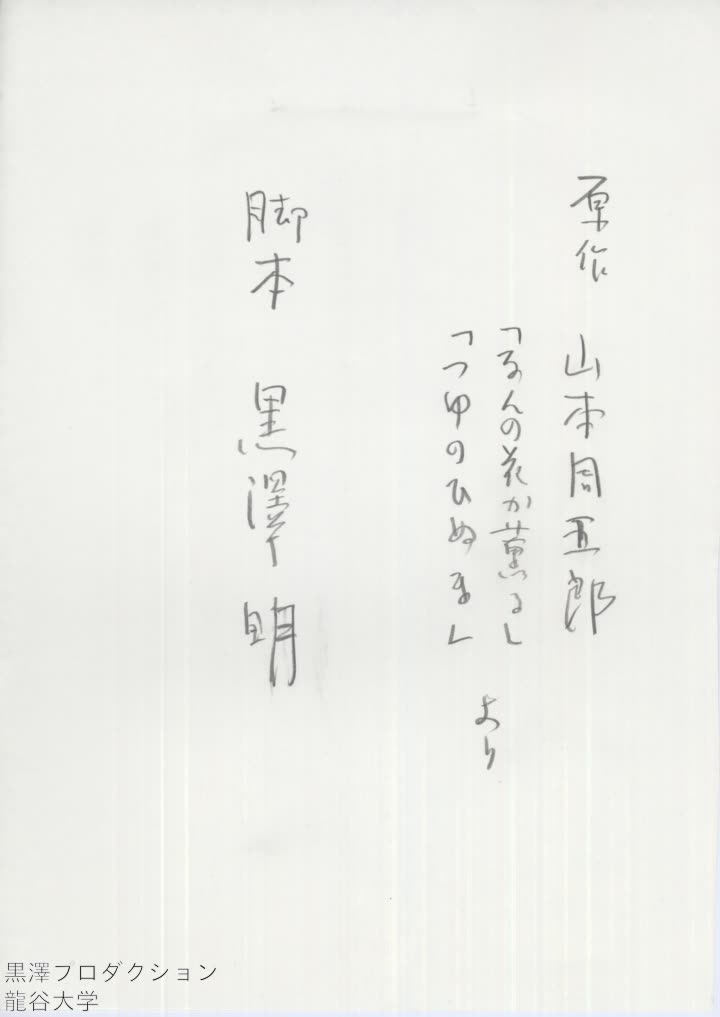 原作 山本周五郎
「なんの花か薫る」
「つゆのひぬま」
より
脚本 黒澤明
黒澤プロダクション
龍谷大学